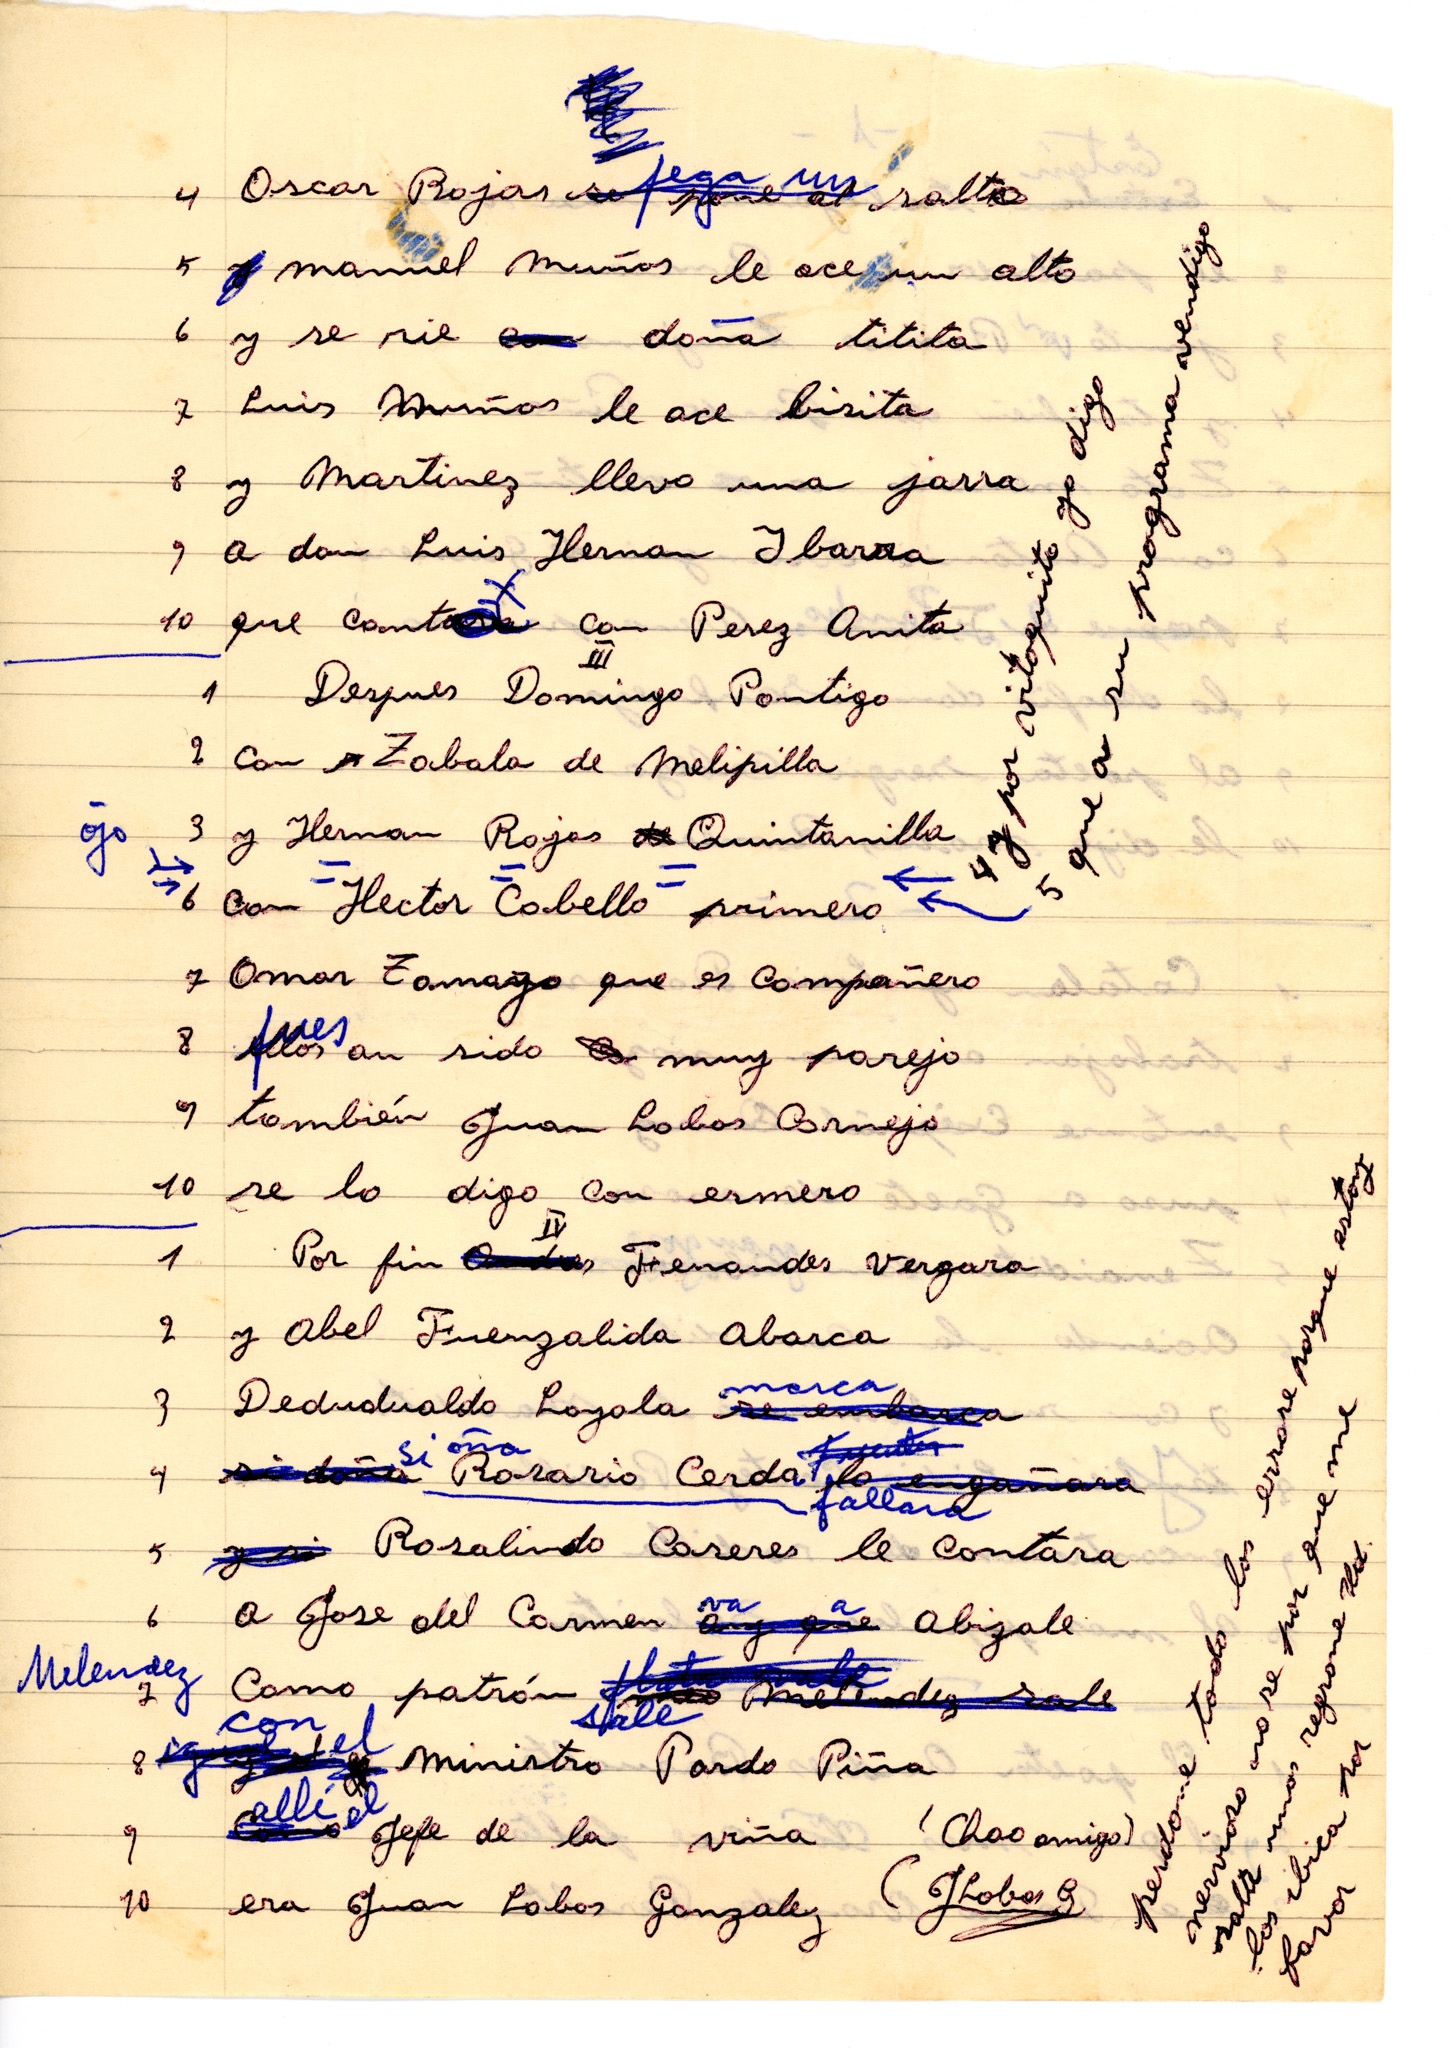 4 Oscar Rojas se pone al salto
pega un
5 y manuel muños le ace un alto
6 y se rie con doña titita
7 Luis Muños le ace bisita
8 y Martinez llevo una jarra
9 a don Luis Hernan Ibarra
10 que canta con Perez Anita
III
1 Despues Domingo Pontigo
2 con Zabala de Melipilla
ojo 3 y Hernan Rojas de Quintanilla
4 y por vitoquito yo digo
5 que a su programa vendigo
6 con Hector Cabello primero
7 Omar Tamayo que es compañero
pues
8 ellos an sido muy parejo
9 también Juan Lobos Cornejo
10 se lo digo con esmero
IV
1 Por fin Fernandes Vergara
2 y Abel Fuenzalida Abarca
marca
3 Dedudualdo Loyola se embarca
si oña
4 si doña Rosario Cerda lo engañara
fallara
5 y si Rosalindo Caseres le contara
va a
6 a Jose del Carmen ay que Abizale
Melendez
7 Como patrón Melendez sale
sale
con el
8 Ministro Pardo Piña
alli el
9 Como Jefe de la viña (Chao amigo)
10 era Juan Lobos Gonzalez (JLobos G
perdone todo los errore porque estoy
nervioso no se por que me
salte unos regrone Ud.
los ibica por
favor